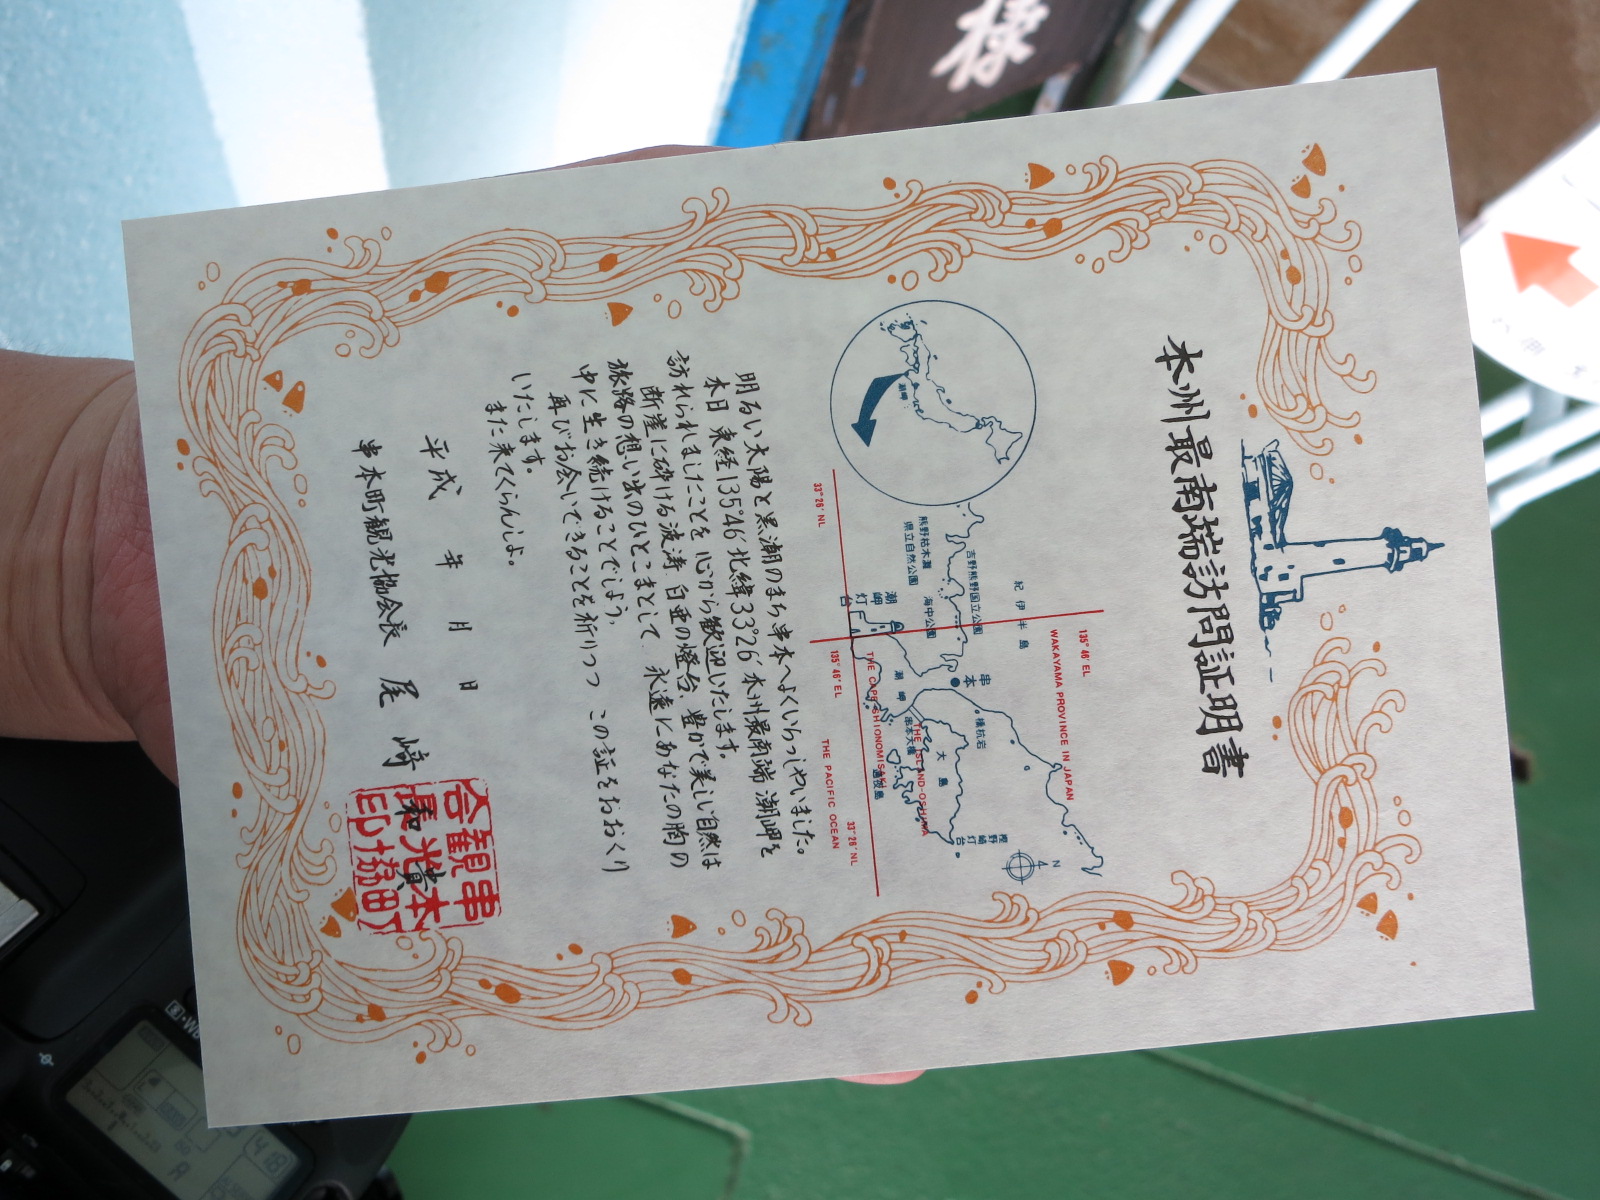 様
本州最南端訪問証明書
135°46′EL
WAKAYAMA PROVINCE IN JAPAN
紀伊半島
吉野熊野国立公園
熊野枯木灘
県立自然公園
海中公園
串本
橋杭岩
大島
THE ISLAND-OSHIMA
串本大橋
潮岬
潮岬
灯台
樫野崎
灯台
N
4
THE CAPE SHIONOMISAKI
33°26′NL
135°46′EL
THE PACIFIC OCEAN
33°26′NL
潮岬
明るい太陽と黒潮のまち串本へよくいらっしゃいました。
本日東経135°46′北緯33°26′本州最南端潮岬を
訪れられましたことを心から歓迎いたします。
断崖に砕ける波涛、白亜の燈台、豊かで美しい自然は
旅路の想い出のひとこまとして、永遠にあなたの胸の
中に生き続けることでしょう。
再びお会いできることを祈りつつ この証をおおくり
いたします。
また来てくらんしよ。
平成 年 月 日
串本町観光協会長 尾﨑和貴
串本町
観光協
会長印